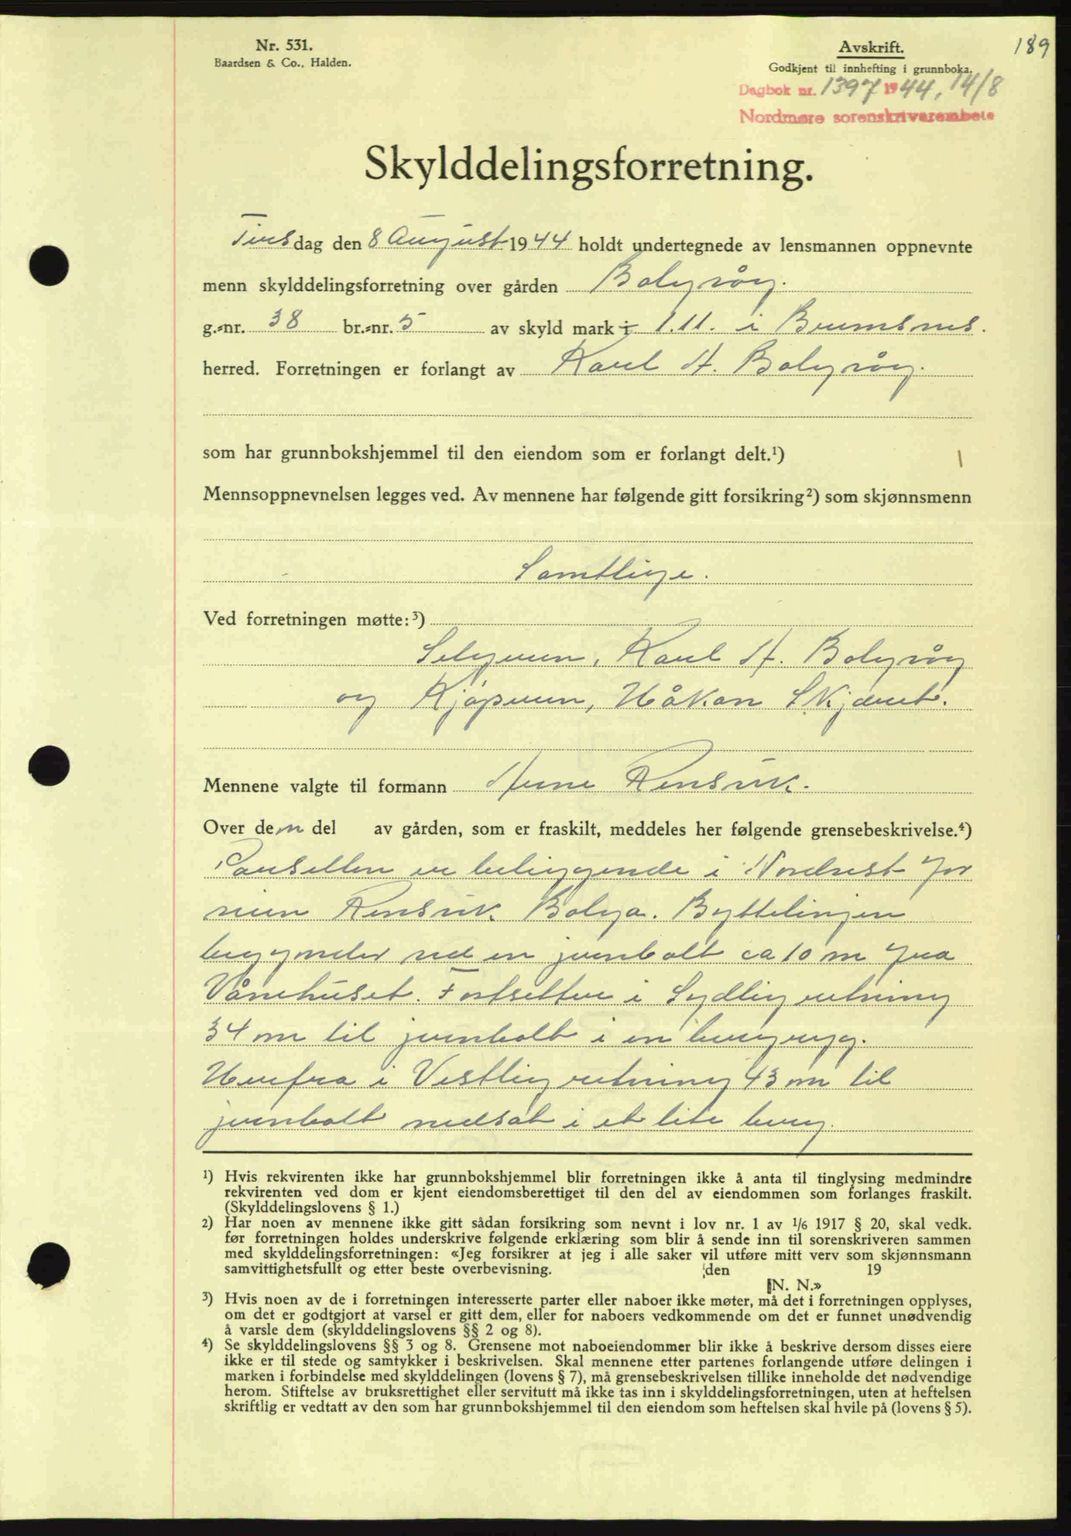 Nr. 531.
Baardsen & Co., Halden.
Avskrift.
189
Godkjent til innhefting i grunnboka.
Dagbok nr. 1397 1944, 14/8
Nordmøre sorenskrivarembete
Skylddelingsforretning.
Tirsdag den 8 August 1944 holdt undertegnede av lensmannen oppnevnte
menn skylddelingsforretning over gården Bolgvåg.
g.=nr. 38 br.=nr. 5 av skyld mark 1.11. i Bremsnes.
herred. Forretningen er forlangt av Karl H. Bolgvåg.
som har grunnbokshjemmel til den eiendom som er forlangt delt.¹)
Mennsoppnevnelsen legges ved. Av mennene har følgende gitt forsikring²) som skjønnsmenn
Samtlige.
Ved forretningen møtte:³)
Selgeren, Karl H. Bolgvåg
og Kjøperen, Håkon
Mennene valgte til formann Arne Rensvik.
Over den del av gården, som er fraskilt, meddeles her følgende grensebeskrivelse.⁴)
Parsellen er beliggende i Nordvest for
veien Rensvik Bolga. Byttelinjen
begynder ved en jernbolt ca 10 m fra
Vånehuset. Fortsetter i Sydlig retning
34 m til jernbolt i en bergrygg.
Herfra i Vestlig retning 43 m til
jernbolt nedsat i et lite berg.
¹) Hvis rekvirenten ikke har grunnbokshjemmel blir forretningen ikke å anta til tinglysing medmindre
rekvirenten ved dom er kjent eiendomsberettiget til den del av eiendommen som forlanges fraskilt.
(Skylddelingslovens § 1.)
²) Har noen av mennene ikke gitt sådan forsikring som nevnt i lov nr. 1 av 1/6 1917 § 20, skal vedk.
før forretningen holdes underskrive følgende erklæring som blir å sende inn til sorenskriveren sammen
med skylddelingsforretningen: «Jeg forsikrer at jeg i alle saker vil utføre mitt verv som skjønnsmann
samvittighetsfullt og etter beste overbevisning. den 19
N. N.»
³) Hvis noen av de i forretningen interesserte parter eller naboer ikke møter, må det i forretningen opplyses,
om det er godtgjort at varsel er gitt dem, eller for naboers vedkommende om det er funnet unødvendig
å varsle dem (skylddelingslovens §§ 2 og 8).
⁴) Se skylddelingslovens §§ 3 og 8. Grensene mot naboeiendommer blir ikke å beskrive dersom disses eiere
ikke er til stede og samtykker i beskrivelsen. Skal mennene etter partenes forlangende utføre delingen i
marken i forbindelse med skylddelingen (lovens § 7), må grensebeskrivelsen tillike inneholde det nødvendige
herom. Stiftelse av bruksrettighet eller servitutt må ikke tas inn i skylddelingsforretningen, uten at heftelsen
skriftlig er vedtatt av den som har grunnbokshjemmel til den eiendom som heftelsen skal hvile på (lovens § 5).